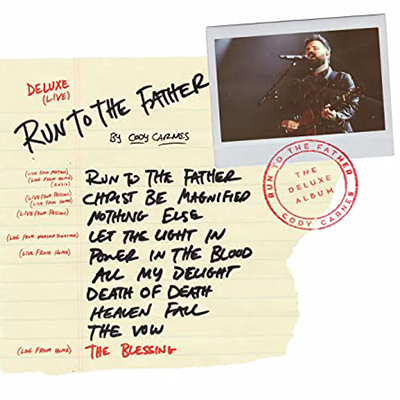 DELUXE
(LIVE)
RUN TO THE FATHER
BY CODY CARNES
(LIVE FROM PASSION)
(LIVE FROM HOME)
(RADIO)
RUN TO THE FATHER
(LIVE FROM PASSION)
(LIVE FROM HOME)
CHRIST BE MAGNIFIED
(LIVE FROM PASSION)
NOTHING ELSE
(LIVE FROM
LET THE LIGHT IN
(LIVE FROM HOME)
POWER IN THE BLOOD
ALL MY DELIGHT
DEATH OF DEATH
HEAVEN FALL
THE VOW
(LIVE FROM HOME)
THE BLESSING
RUN TO THE FATHER
THE
DELUXE
ALBUM
CODY CARNES